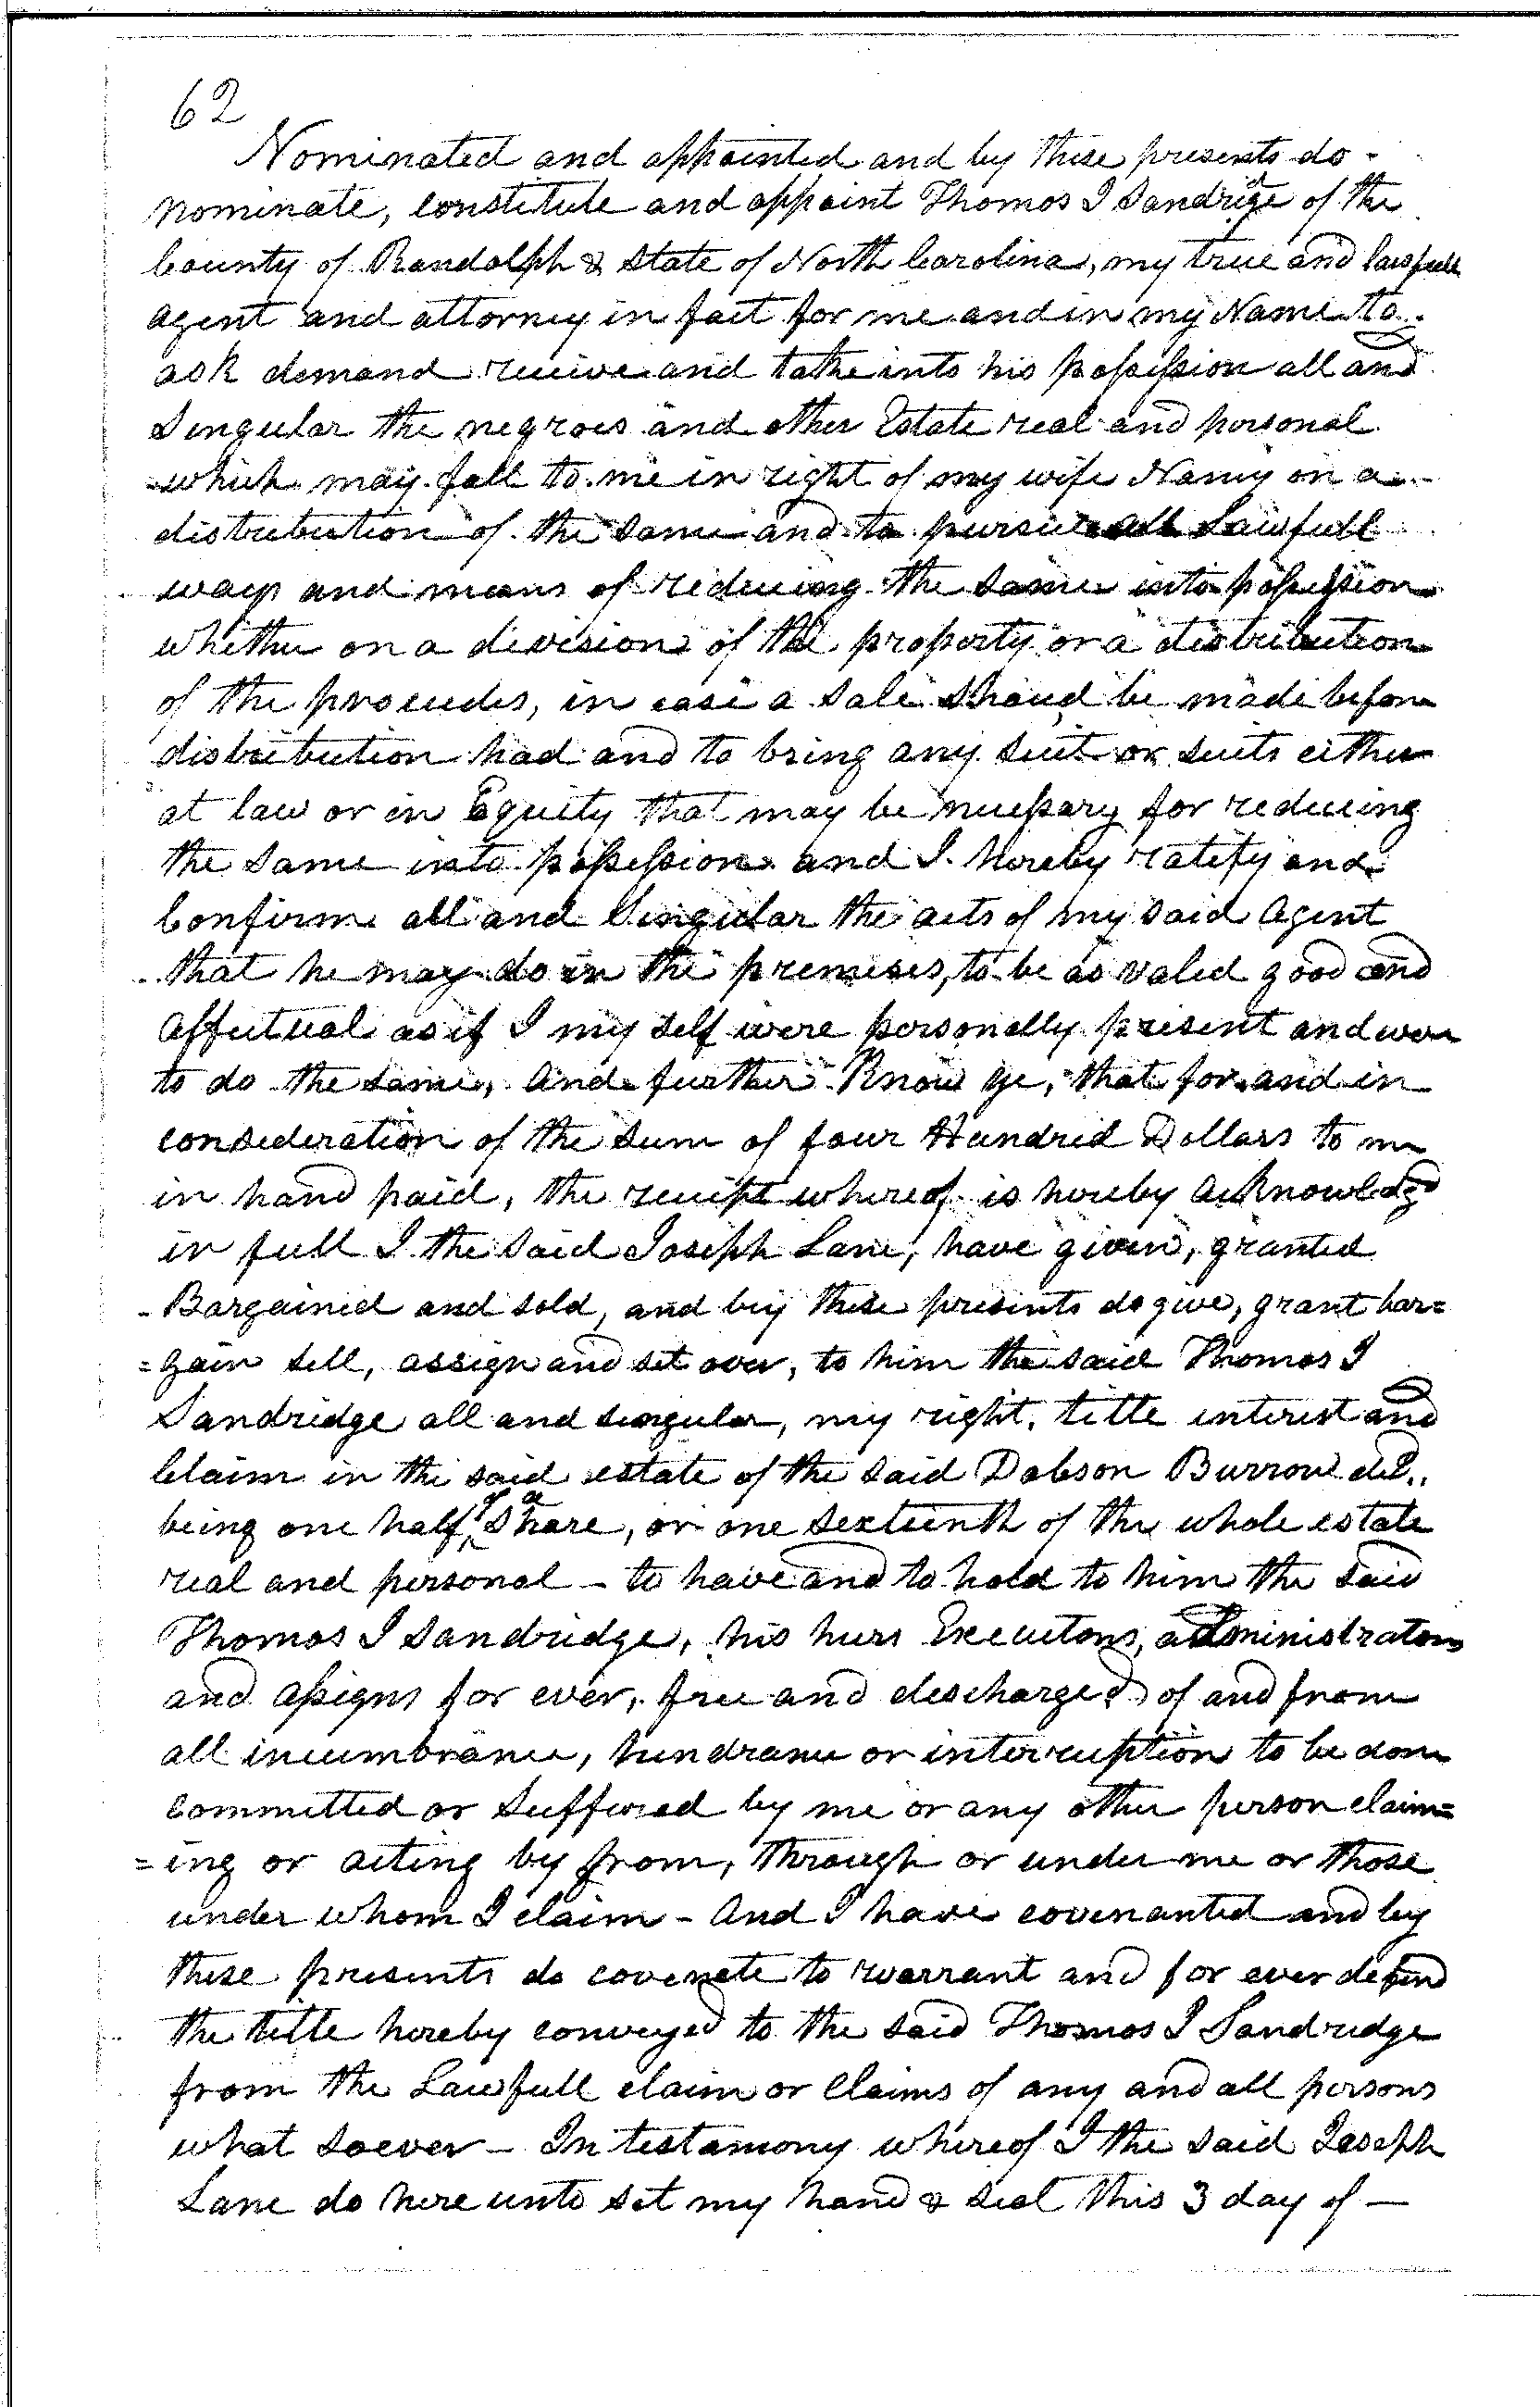 62
Nominated and appointed and by these presents do
nominate, constitute and appoint Thomas I Sandridge of the
County of Randolph & State of North Carolina, my true and lawfull
agent and attorney in fact for me and in my Name to
ask demand receive and take into his possession all and
Singular the negroes and other Estate real and personal
which may fall to me in right of my wife Nancy on a
distribution of the same and to pursue all Lawfull
ways and means of reducing the same into possession
whether on a division of the property or a distribution
of the proceedes, in case a sale shoud be made before
distribution had and to bring any suit or suits either
at law or in Equity that may be necessary for reducing
the same into possession and I hereby ratify and
Confirm all and Singular the acts of my said Agent
that he may do in the premises, to be as valed good and
affectual as if I my self were personally present and were
to do the same, and further Know ye, that for and in
consederation of the sum of four Hundred Dollars to me
in hand paid, the receipt whereof is hereby acknowledgd
in full I the said Joseph Lane, have given, granted
Bargained and sold, and by these presents do give, grant bar=
=gain sell, assign and set over, to him the said Thomas I
Sandridge all and singular, my right, title interest and
Claim in the said estate of the said Dobson Burrow decd.,
being one half of a share, or one sexteenth of the whole estate
real and personal - to have and to hold to him the said
Thomas I Sandridge, his heirs Executors, administrators
and assigns for ever, free and discharged of and from
all incumbrance, hendrance or interruption to be done
committed or suffered by me or any other person claim=
=ing or acting by from, through or under me or those
under whom I claim - And I have covenanted and by
these presents do covenete to warrant and for ever defend
the title hereby conveyed to the said Thomas I Sandridge
from the Lawfull claim or Claims of any and all persons
what soever - In testamony whereof I the said Joseph
Lane do here unto set my hand & seal this 3 day of -